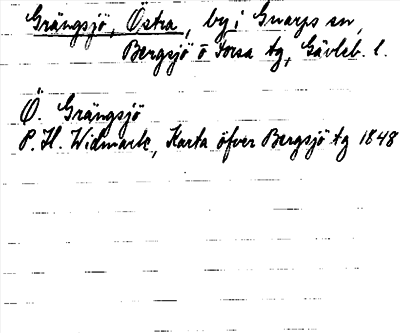 Grängsjö, Östra, by i Gnarps sn,
Bergsjö o Forsa tg, Gävleb. l.
Ö. Grängsjö
P. H. Widmark, Karta öfver Bergsjö tg 1848